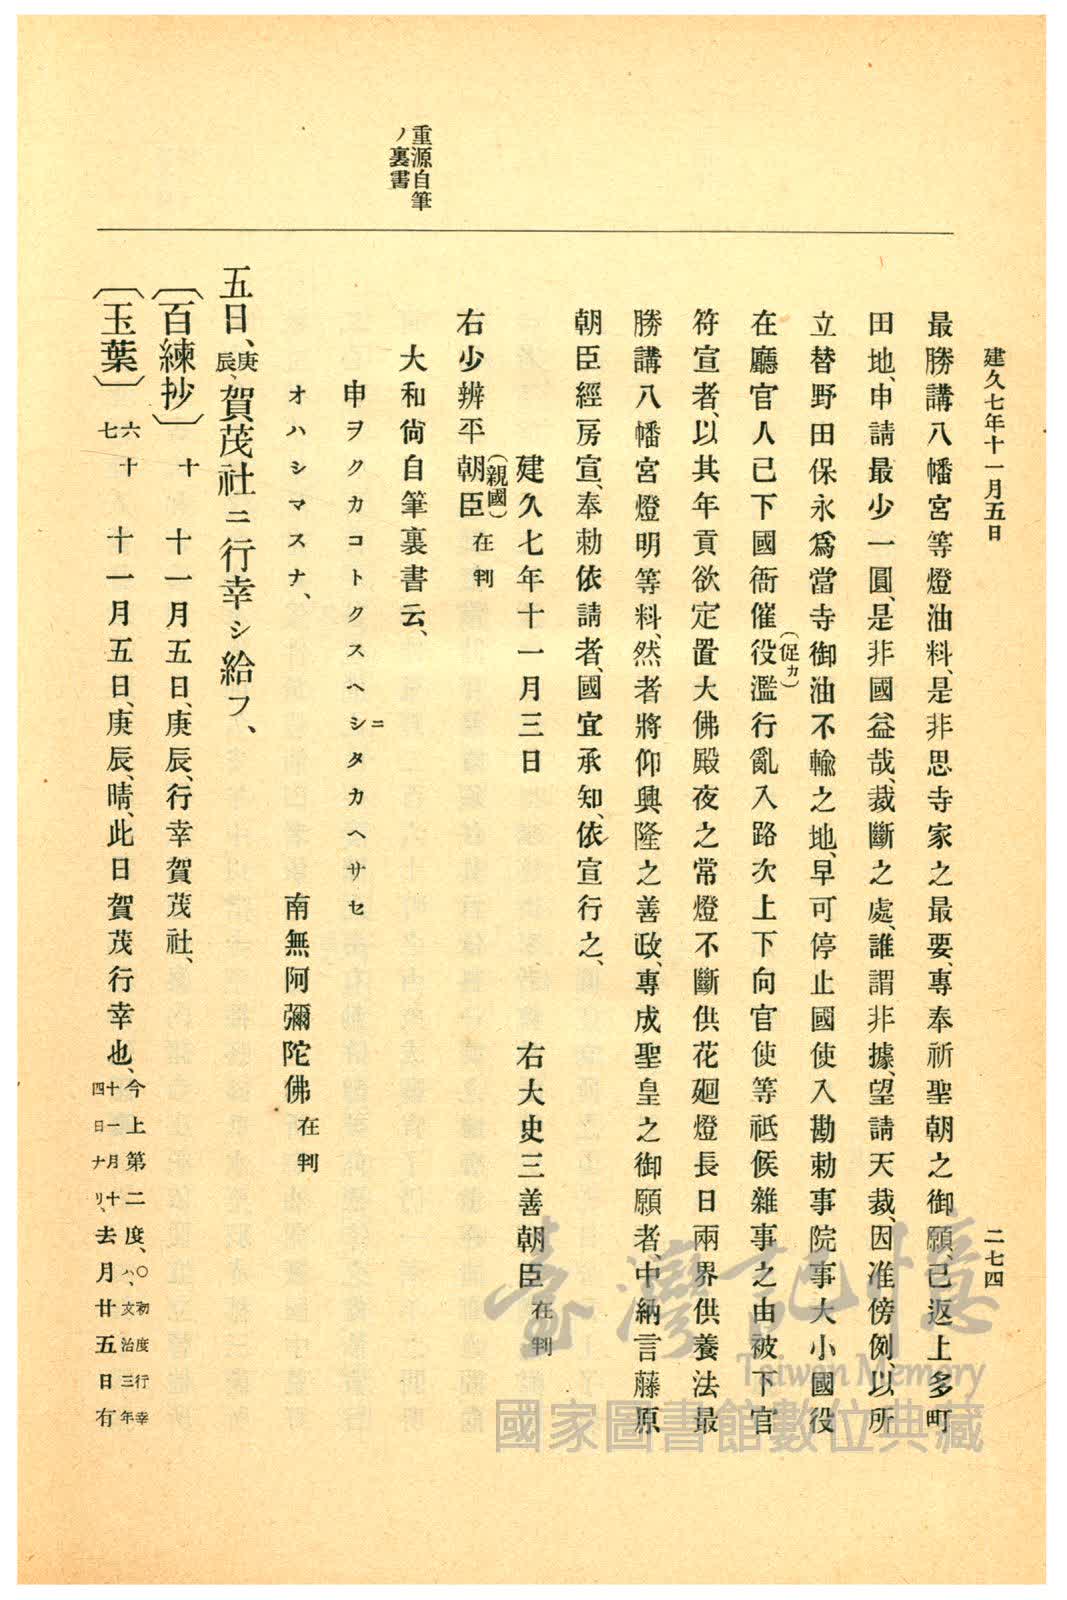 建久七年十一月五日
二七四
最勝講八幡宮等燈油料、是非思寺家之最要、專奉祈聖朝之御願、已返上多町
田地、申請最少一圓、是非國益哉、裁斷之處、誰謂非據、望請天裁、因准傍例、以所
立替野田保永爲當寺御油不輸之地、早可停止國使入勘勅事院事大小國役
在廳官人已下國衙催役濫行亂入路次上下向官使等祗候雜事之由被下官
(促カ)
符宣者、以其年貢欲定置大佛殿夜之常燈不斷供花廻燈長日兩界供養法最
勝講八幡宮燈明等料、然者將仰興隆之善政、專成聖皇之御願者、中納言藤原
朝臣經房宣、奉勅依請者、國宜承知、依宣行之、
建久七年十一月三日 右大史三善朝臣在判
右少辨平朝臣在判
(親國)
重源自筆
ノ裏書
大和尙自筆裏書云、
申ヲクカコトクスヘシタカヘサセ
ニ
オハシマスナ、
南無阿彌陀佛在判
五日、庚辰、賀茂社ニ行幸シ給フ、
〔百練抄〕 十 十一月五日、庚辰、行幸賀茂社、
〔玉葉〕 六十七 十一月五日、庚辰、晴、此日賀茂行幸也、今上第二度、〇初度行幸ハ、文治三年十一月十四日ナリ、去月廿五日有
臺灣記憶
Taiwan Memory
國家圖書館數位典藏